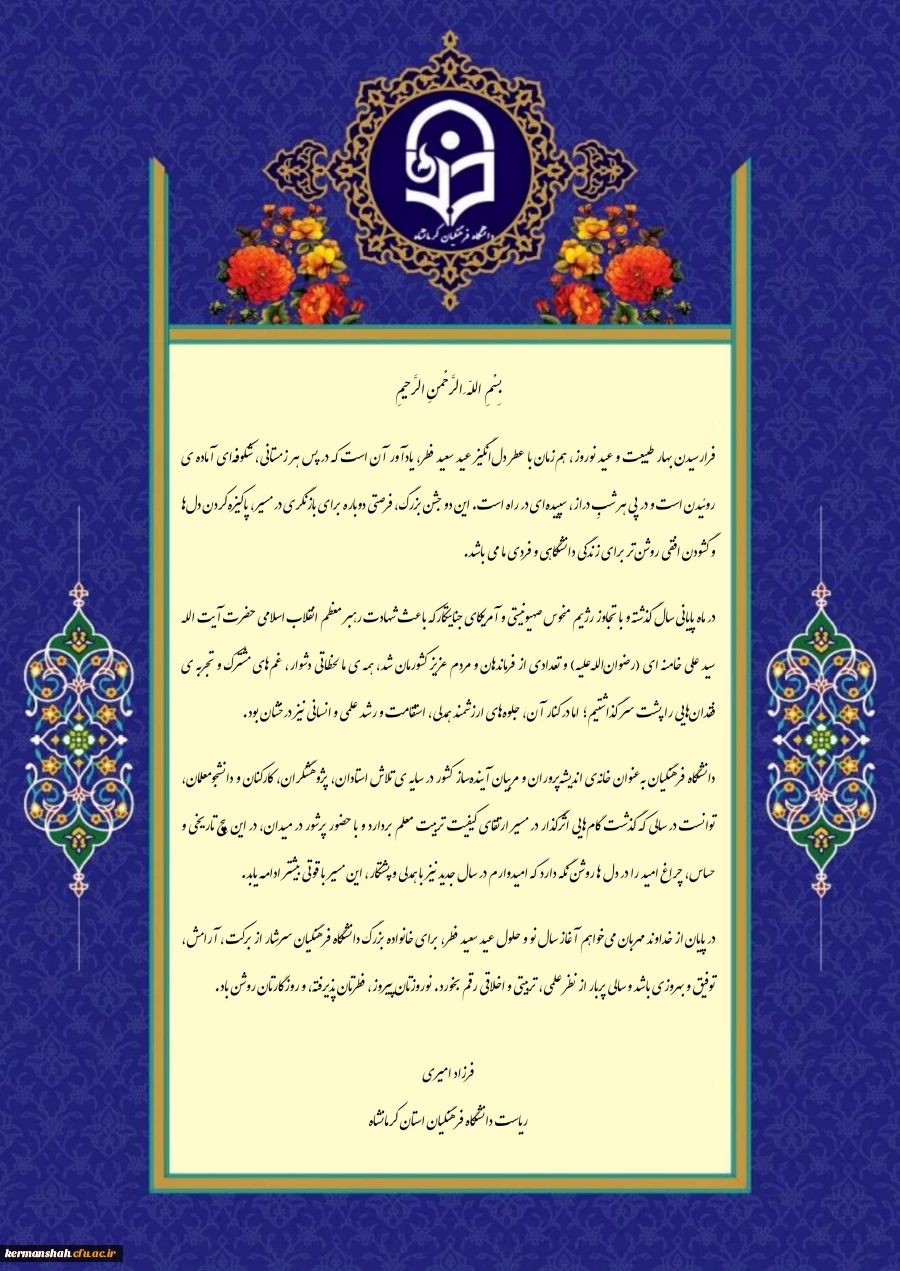 دانشگاه فرهنگیان کرمانشاه
بِسْمِ اللَّهِ الرَّحْمنِ الرَّحِیمِ
فرارسیدن بهار طبیعت و عید نوروز، هم‌زمان با عطر دل‌انگیز عید سعید فطر، یادآور آن است که در پس هر زمستانی، شکوفه‌ای آماده ی
روئیدن است و در پی هر شبِ دراز، سپیده‌ای در راه است. این دو جشن بزرگ، فرصتی دوباره برای بازنگری در مسیر، پاکیزه‌کردن دل‌ها
و گشودن افقی روشن‌تر برای زندگی دانشگاهی و فردی ما می باشد.
در ماه پایانی سال گذشته و با تجاوز رژیم منحوس صهیونیستی و آمریکای جنایتکار که باعث شهادت رهبر معظم انقلاب اسلامی حضرت آیت الله
سید علی خامنه ای (رضوان‌الله‌علیه) و تعدادی از فرماندهان و مردم عزیز کشورمان شد، همه ی ما لحظاتی دشوار، غم‌های مشترک و تجربه ی
فقدان‌هایی را پشت سر گذاشتیم؛ اما در کنار آن، جلوه‌های ارزشمند همدلی، استقامت و رشد علمی و انسانی نیز درخشان بود.
دانشگاه فرهنگیان به‌عنوان خانه‌ی اندیشه‌پروران و مربیان آینده‌ساز کشور در سایه ی تلاش استادان، پژوهشگران، کارکنان و دانشجومعلمان،
توانست در سالی که گذشت گام‌هایی اثرگذار در مسیر ارتقای کیفیت تربیت معلم بردارد و با حضور پرشور در میدان، در این پیچ تاریخی و
حساس، چراغ امید را در دل ها روشن نگه دارد که امیدوارم در سال جدید نیز با همدلی و پشتکار، این مسیر با قوتی بیشتر ادامه یابد.
در پایان از خداوند مهربان می‌خواهم آغاز سال نو و حلول عید سعید فطر، برای خانواده بزرگ دانشگاه فرهنگیان سرشار از برکت، آرامش،
توفیق و بهروزی باشد و سالی پربار از نظر علمی، تربیتی و اخلاقی رقم بخورد. نوروزتان پیروز، فطرتان پذیرفته، و روزگارتان روشن باد.
فرزاد امیری
ریاست دانشگاه فرهنگیان استان کرمانشاه
kermanshah.cfu.ac.ir